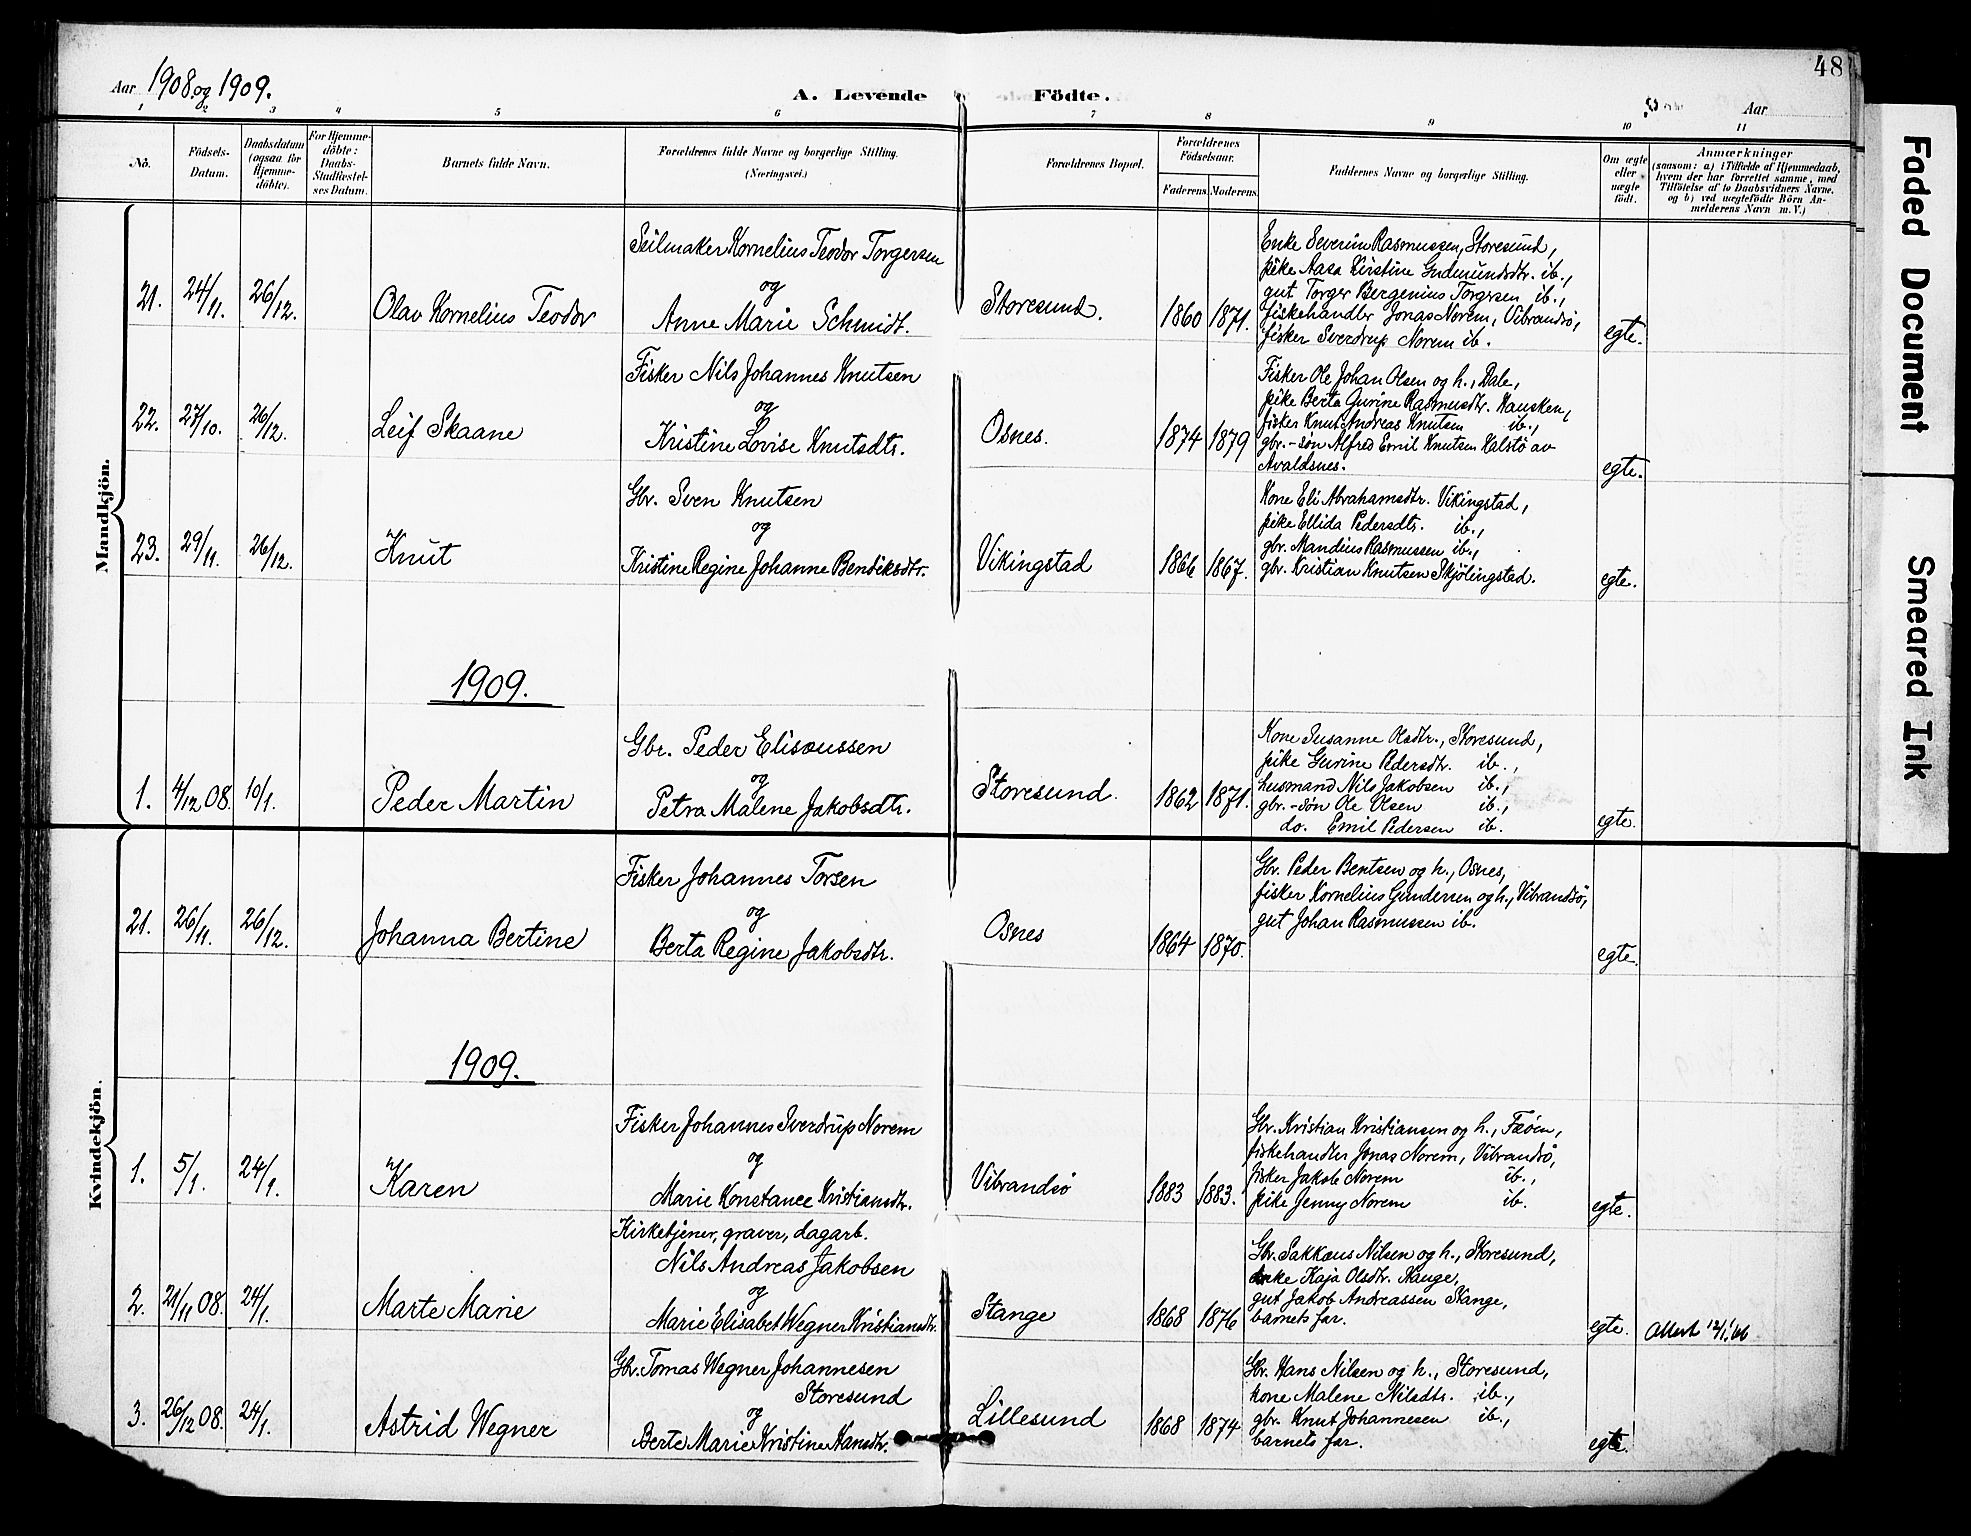 48
Aar 1908 og 1909.
A. Levende Födte.
Aar
1 2 3 4 5 6 7 8 9 10 11
No.
Födsels-Datum.
Daabsdatum (ogsaa for Hjemme-döbte).
For Hjemme-döbte: Daabs-Stadfæstel-ses Datum.
Barnets fulde Navn.
Forældrenes fulde Navne og borgerlige Stilling. (Næringsvei.)
Forældrenes Bopæl.
Forældrenes Födselsaar.
Faderens.
Moderens.
Faddernes Navne og borgerlige Stilling.
Om ægte eller uægte födt.
Anmærkninger
(saasom: a) i Tilfælde af Hjemmedaab, hvem der har forrettet samme, med Tilföielse af to Daabsvidners Navne, og b) ved uægtefödte Börn An-melderens Navn m. V.)
Mandkjön.
21. 24/11. 26/12. Olav Kornelius Teodor
Seilmaker Kornelius Teodor Torgersen
og
Anne Marie Schmidt.
Storesund. 1860 1871.
Enke Severine Rasmussen, Storesund,
pike Aasa Kirstine Gudmundsdtr. ib.,
gut Torger Bergenius Torgersen ib.,
fiskehandler Jonas Norem, Vibrandsö,
fisker Sverdrup Norem ib.
egte.
22. 27/10. 26/12. Leif Skaane
Fisker Nils Johannes Knutsen
og
Kristine Lovise Knutsdtr.
Osnes. 1874 1879
Fisker Ole Johan Olsen og h., Dale,
pike Berta Gurine Rasmusdtr. Hausken,
fisker Knut Andreas Knutsen ib.,
gbr.-søn Alfred Emil Knutsen Kalstö av
Avaldsnes.
egte.
23. 29/11. 26/12. Knut
Gbr. Sven Knutsen
og
Kristine Regine Johanne Bendiksdtr.
Vikingstad 1866 1867.
Kone Eli Abrahamsdtr. Vikingstad,
pike Ellida Pedersdtr. ib.,
gbr. Mandius Rasmussen ib.,
gbr. Kristian Knutsen Skjölingstad.
egte.
1909.
1. 4/12 08. 10/1. Peder Martin
Gbr. Peder Elisæussen
og
Petra Malene Jakobsdtr.
Storesund. 1862 1871.
Kone Susanne Olsdtr., Storesund,
pike Gurine Pedersdtr. ib.,
husmand Nils Jakobsen ib.,
gbr.-søn Ole Olsen ib.,
do. Emil Pedersen ib.
egte.
Kvindekjön.
21. 26/11. 26/12. Johanna Bertine
Fisker Johannes Torsen
og
Berta Regine Jakobsdtr.
Osnes 1864 1870.
Gbr. Peder Bentsen og h., Osnes,
fisker Kornelius Gundersen og h., Vibrandsö,
gut Johan Rasmussen ib.
egte.
1909.
1. 5/1. 24/1. Karen
Fisker Johannes Sverdrup Norem
og
Marie Konstance Kristiansdtr.
Vibrandsø 1883 1883.
Gbr. Kristian Kristiansen og h., Fæöen,
fiskehandler Jonas Norem, Vibrandsö,
fisker Jakob Norem ib.,
pike Jenny Norem ib.
egte.
2. 21/11 08. 24/1. Marte Marie
Kirketjener, graver, dagarb.
Nils Andreas Jakobsen
og
Marie Elisabet Wegner Kristiansdtr.
Stange 1868 1876
Gbr. Sakkæus Nilsen og h., Storesund,
enke Kaja Olsdtr. Hauge,
gut Jakob Andreassen Stange,
barnets far.
egte.
3. 26/12 08. 24/1. Astrid Wegner
Gbr. Tomas Wegner Johannesen
Storesund
og
Berte Marie Kristine Hansdtr.
Lillesund 1868 1874
Gbr. Hans Nilsen og h., Storesund,
kone Malene Nilsdtr. ib.,
gbr. Knut Johannesen ib.,
barnets far.
egte.
Faded Document
Smeared Ink